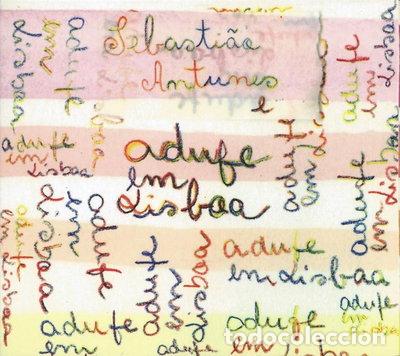 Sebastião
Antunes
e
adufe
em
Lisboa
adufe
em
Lisboa
adufe
em
Lisboa
adufe
em
Lisboa
adufe
em
Lisboa
adufe
em
Lisboa
adufe
em
Lisboa
adufe
em Lisboa
adufe
em
Lisboa
adufe
em
Lisboa
adufe
em
adufe
em
adufe
em
todocoleccion